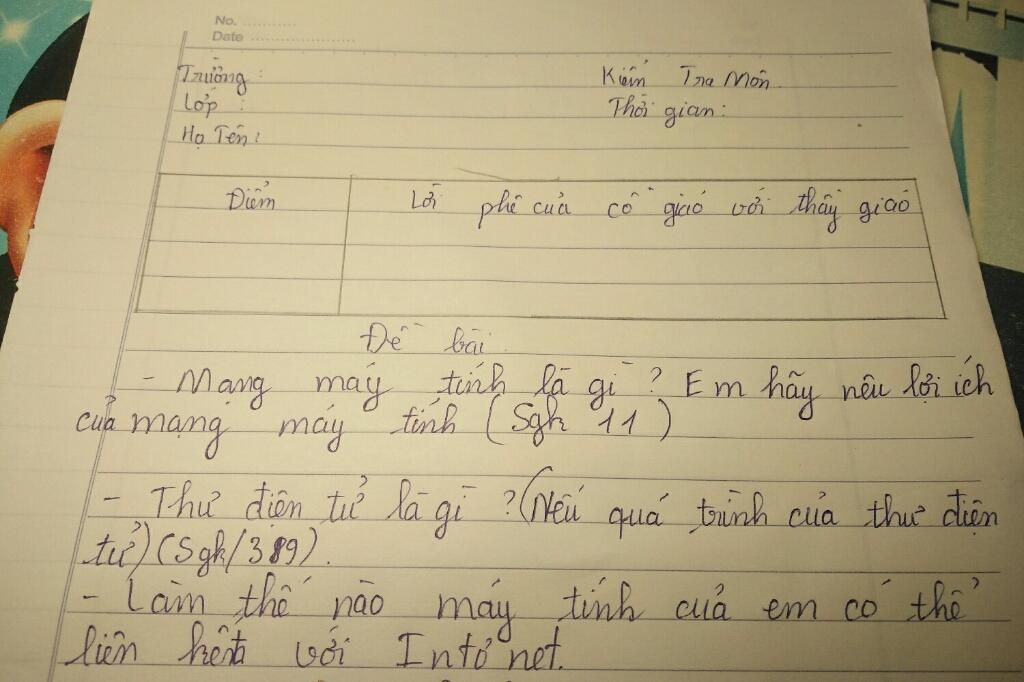 No. ............
Date ........................
Trường : Kiểm Tra Môn
Lớp : Thời gian:
Họ Tên:
Điểm Lời phê của cố giáo với thầy giáo
Đề bài
- Mạng máy tính là gì ? Em hãy nêu lợi ích
của mạng máy tính (Sgk 11)
- Thư điện tử là gì ? (Nếu quá trình của thư điện
tử) (Sgk/389).
- Làm thế nào máy tính của em có thể
liên kết với Intơnet.